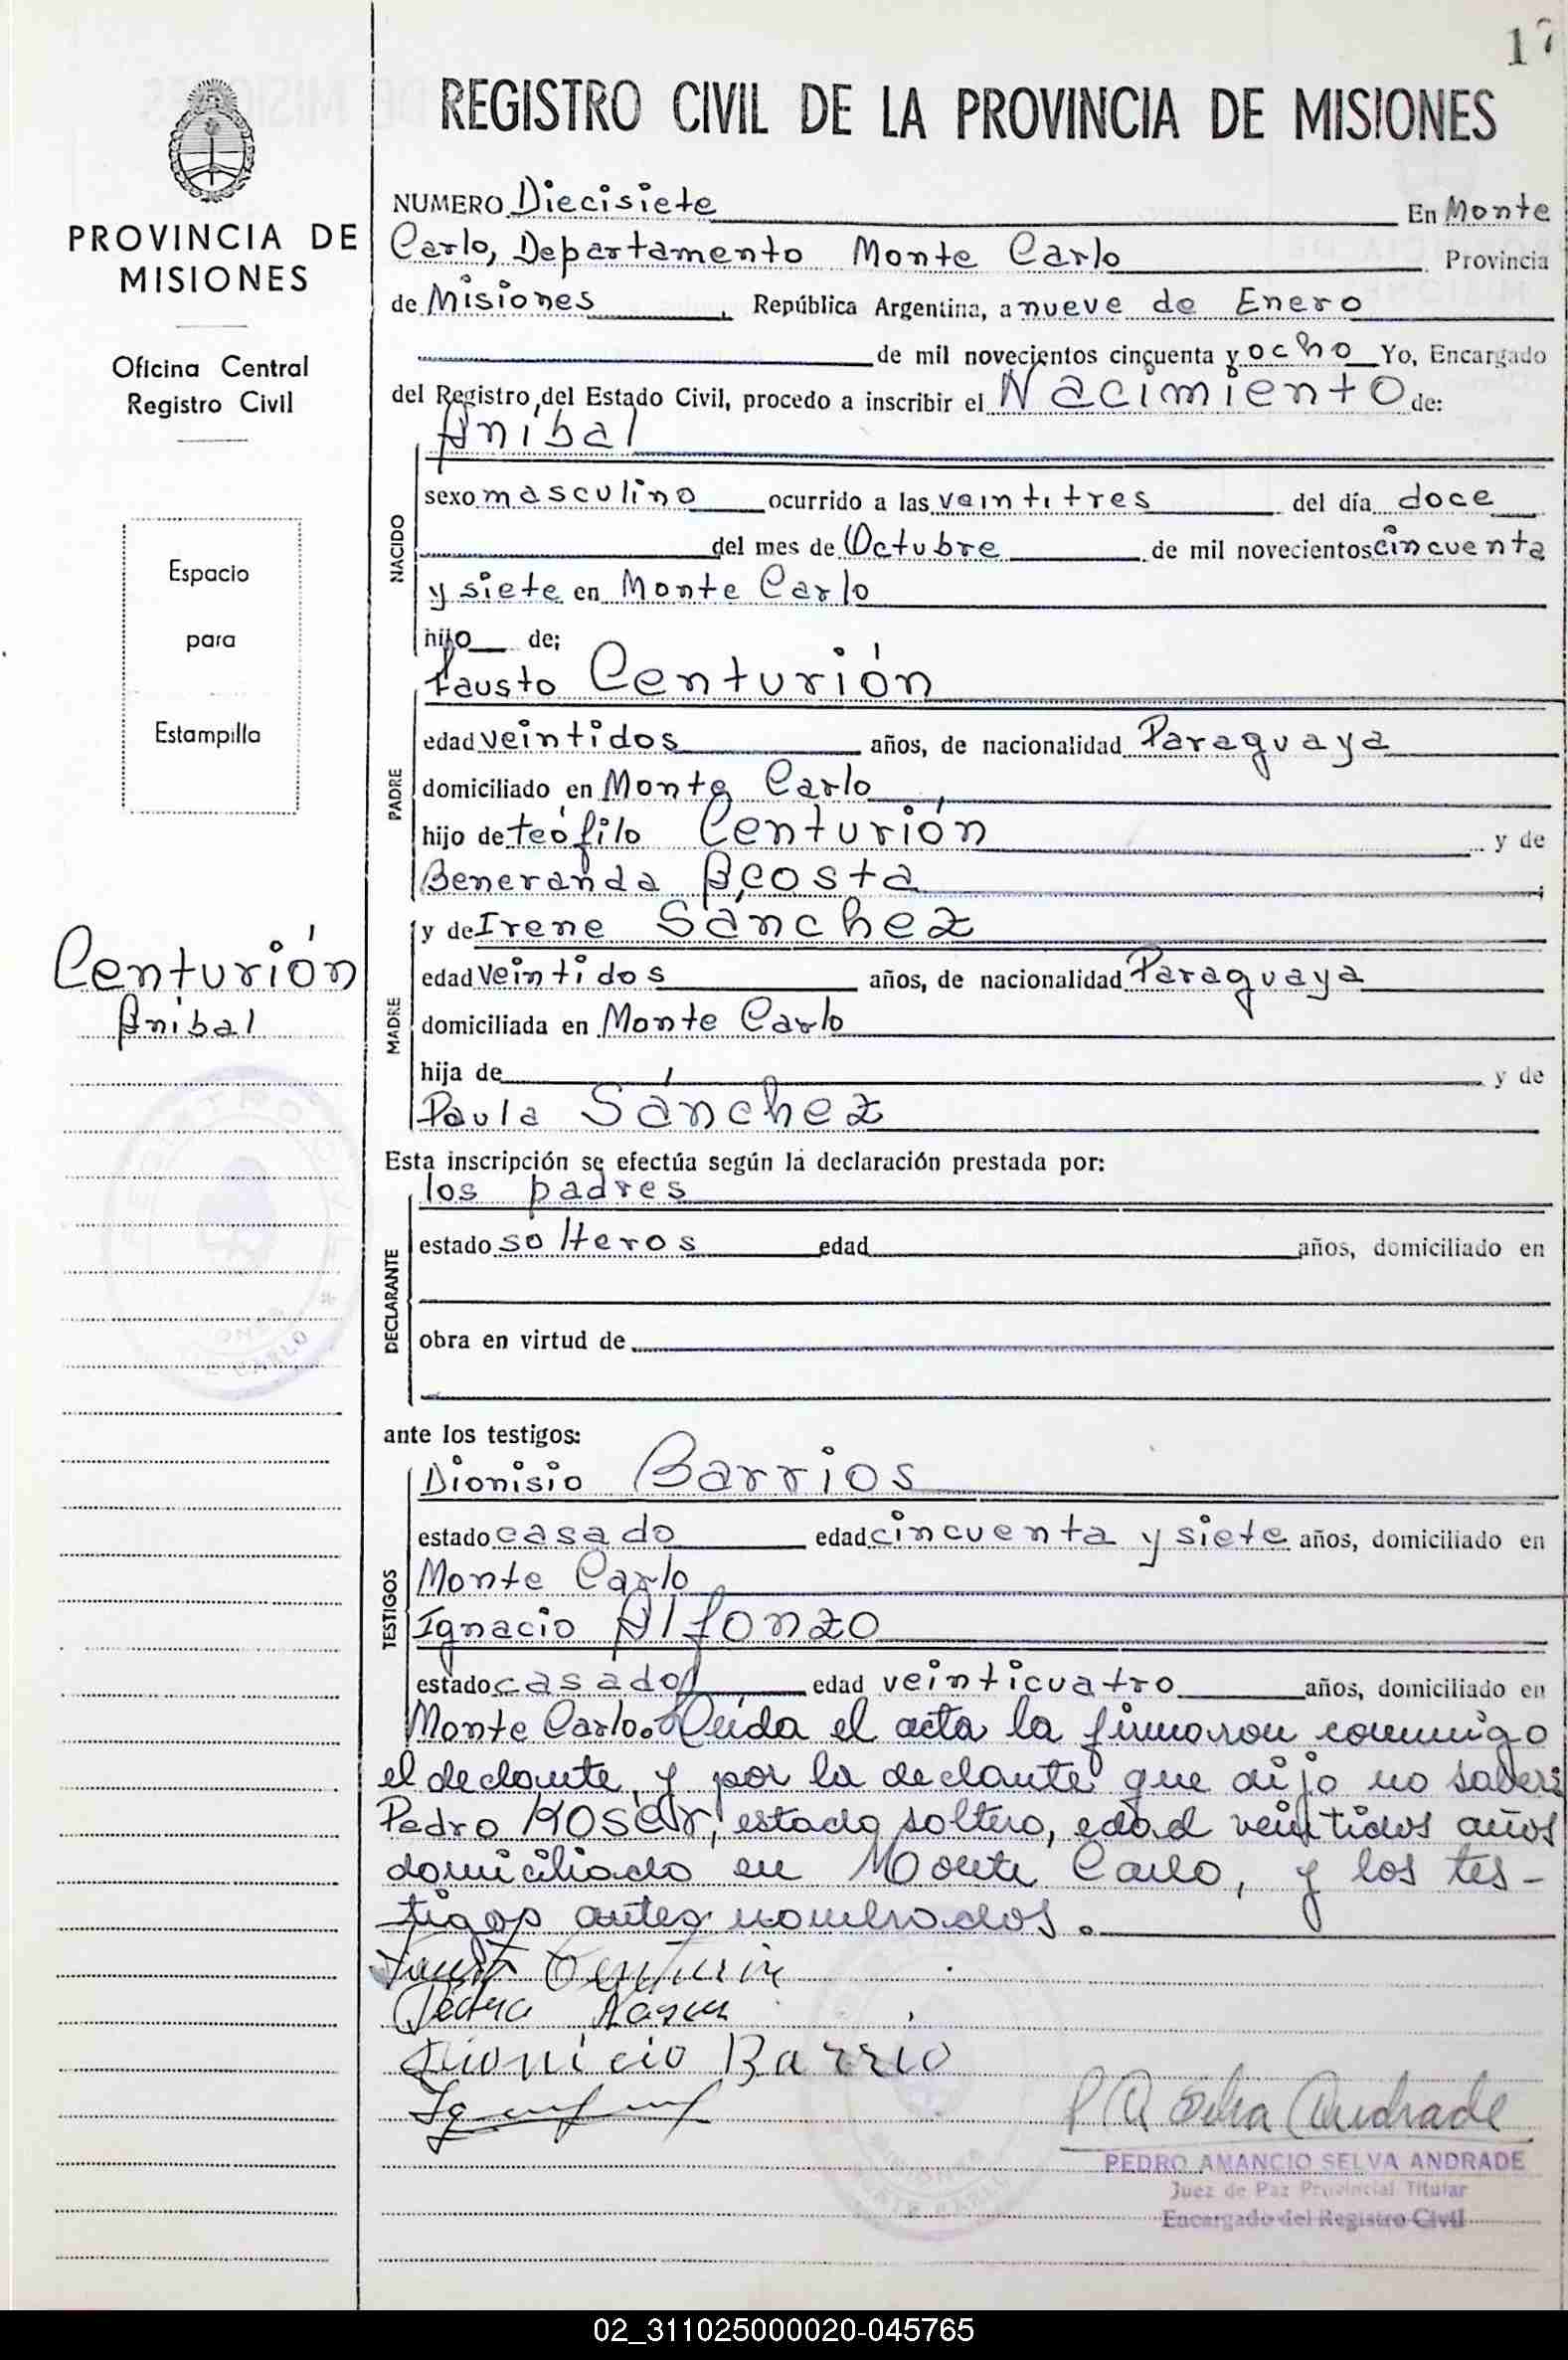 17
REGISTRO CIVIL DE LA PROVINCIA DE MISIONES
PROVINCIA DE
MISIONES
Oficina Central
Registro Civil
Espacio
para
Estampilla
Centurión
Aníbal
NUMERO Diecisiete En Monte
Carlo, Departamento Monte Carlo Provincia
de Misiones, República Argentina, a nueve de Enero
de mil novecientos cincuenta y ocho Yo, Encargado
del Registro del Estado Civil, procedo a inscribir el Nacimiento de:
NACIDO
Aníbal
sexo masculino ocurrido a las veintitres del día doce
del mes de Octubre de mil novecientos cincuenta
y siete en Monte Carlo
hijo de;
PADRE
Fausto Centurión
edad veintidos años, de nacionalidad Paraguaya
domiciliado en Monte Carlo
hijo de teófilo Centurión y de
Beneranda Acosta;
MADRE
y de Irene Sánchez
edad veintidos años, de nacionalidad Paraguaya
domiciliada en Monte Carlo
hija de y de
Paula Sánchez
Esta inscripción se efectúa según la declaración prestada por:
DECLARANTE
los padres
estado solteros edad años, domiciliado en
obra en virtud de
ante los testigos:
TESTIGOS
Dionisio Barrios
estado casado edad cincuenta y siete años, domiciliado en
Monte Carlo
Ignacio Alfonzo
estado casado edad veinticuatro años, domiciliado en
Monte Carlo. Leída el acta la firmaron conmigo
el declante, y por la declante que dijo no saber:
Pedro estado soltero, edad veintidos años
domiciliado en Monte Carlo, y los tes-
tigos antes nombrados.
Fausto Centurión
Pedro
Dionicio Barrio
P A Selva Andrade
PEDRO AMANCIO SELVA ANDRADE
Juez de Paz Provincial Titular
Encargado del Registro Civil
02_311025000020-045765